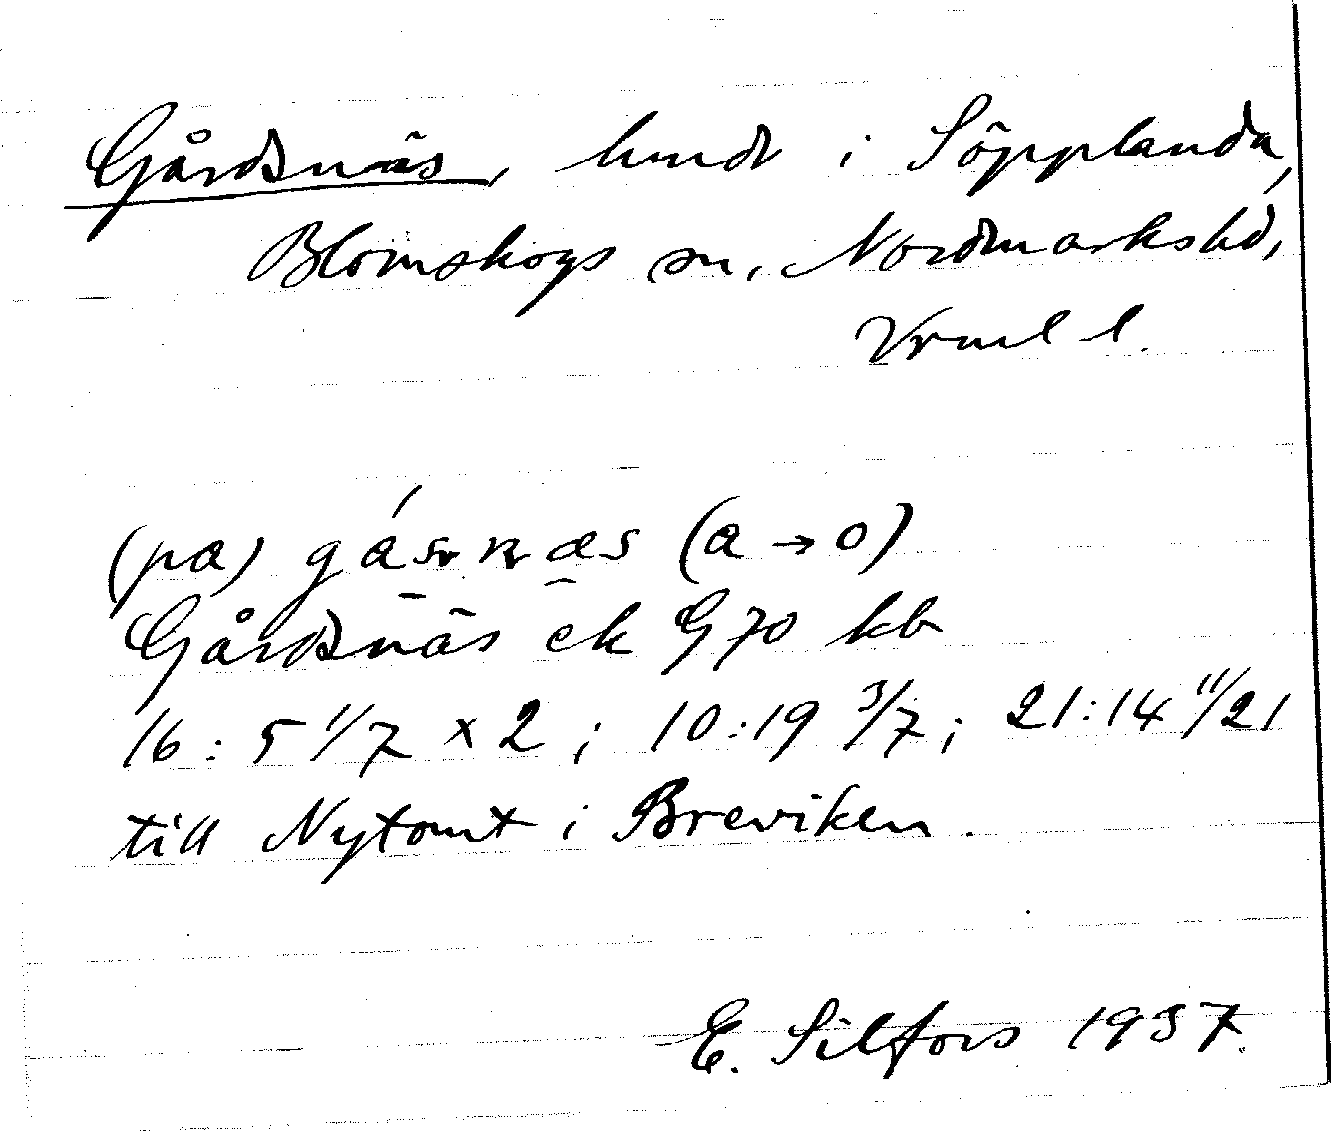 Gårdsnäs, hmdr i Söpplanda,
Blomskogs sn, Nordmarkshd,
Vrml l.
(pa) gásnæs (a → o)
Gårdsnäs ek G70 kb
16:5 1/7 x 2; 10:19 3/7; 21:14 11/21
till Nytomt i Breviken.
E. Silfors 1937.